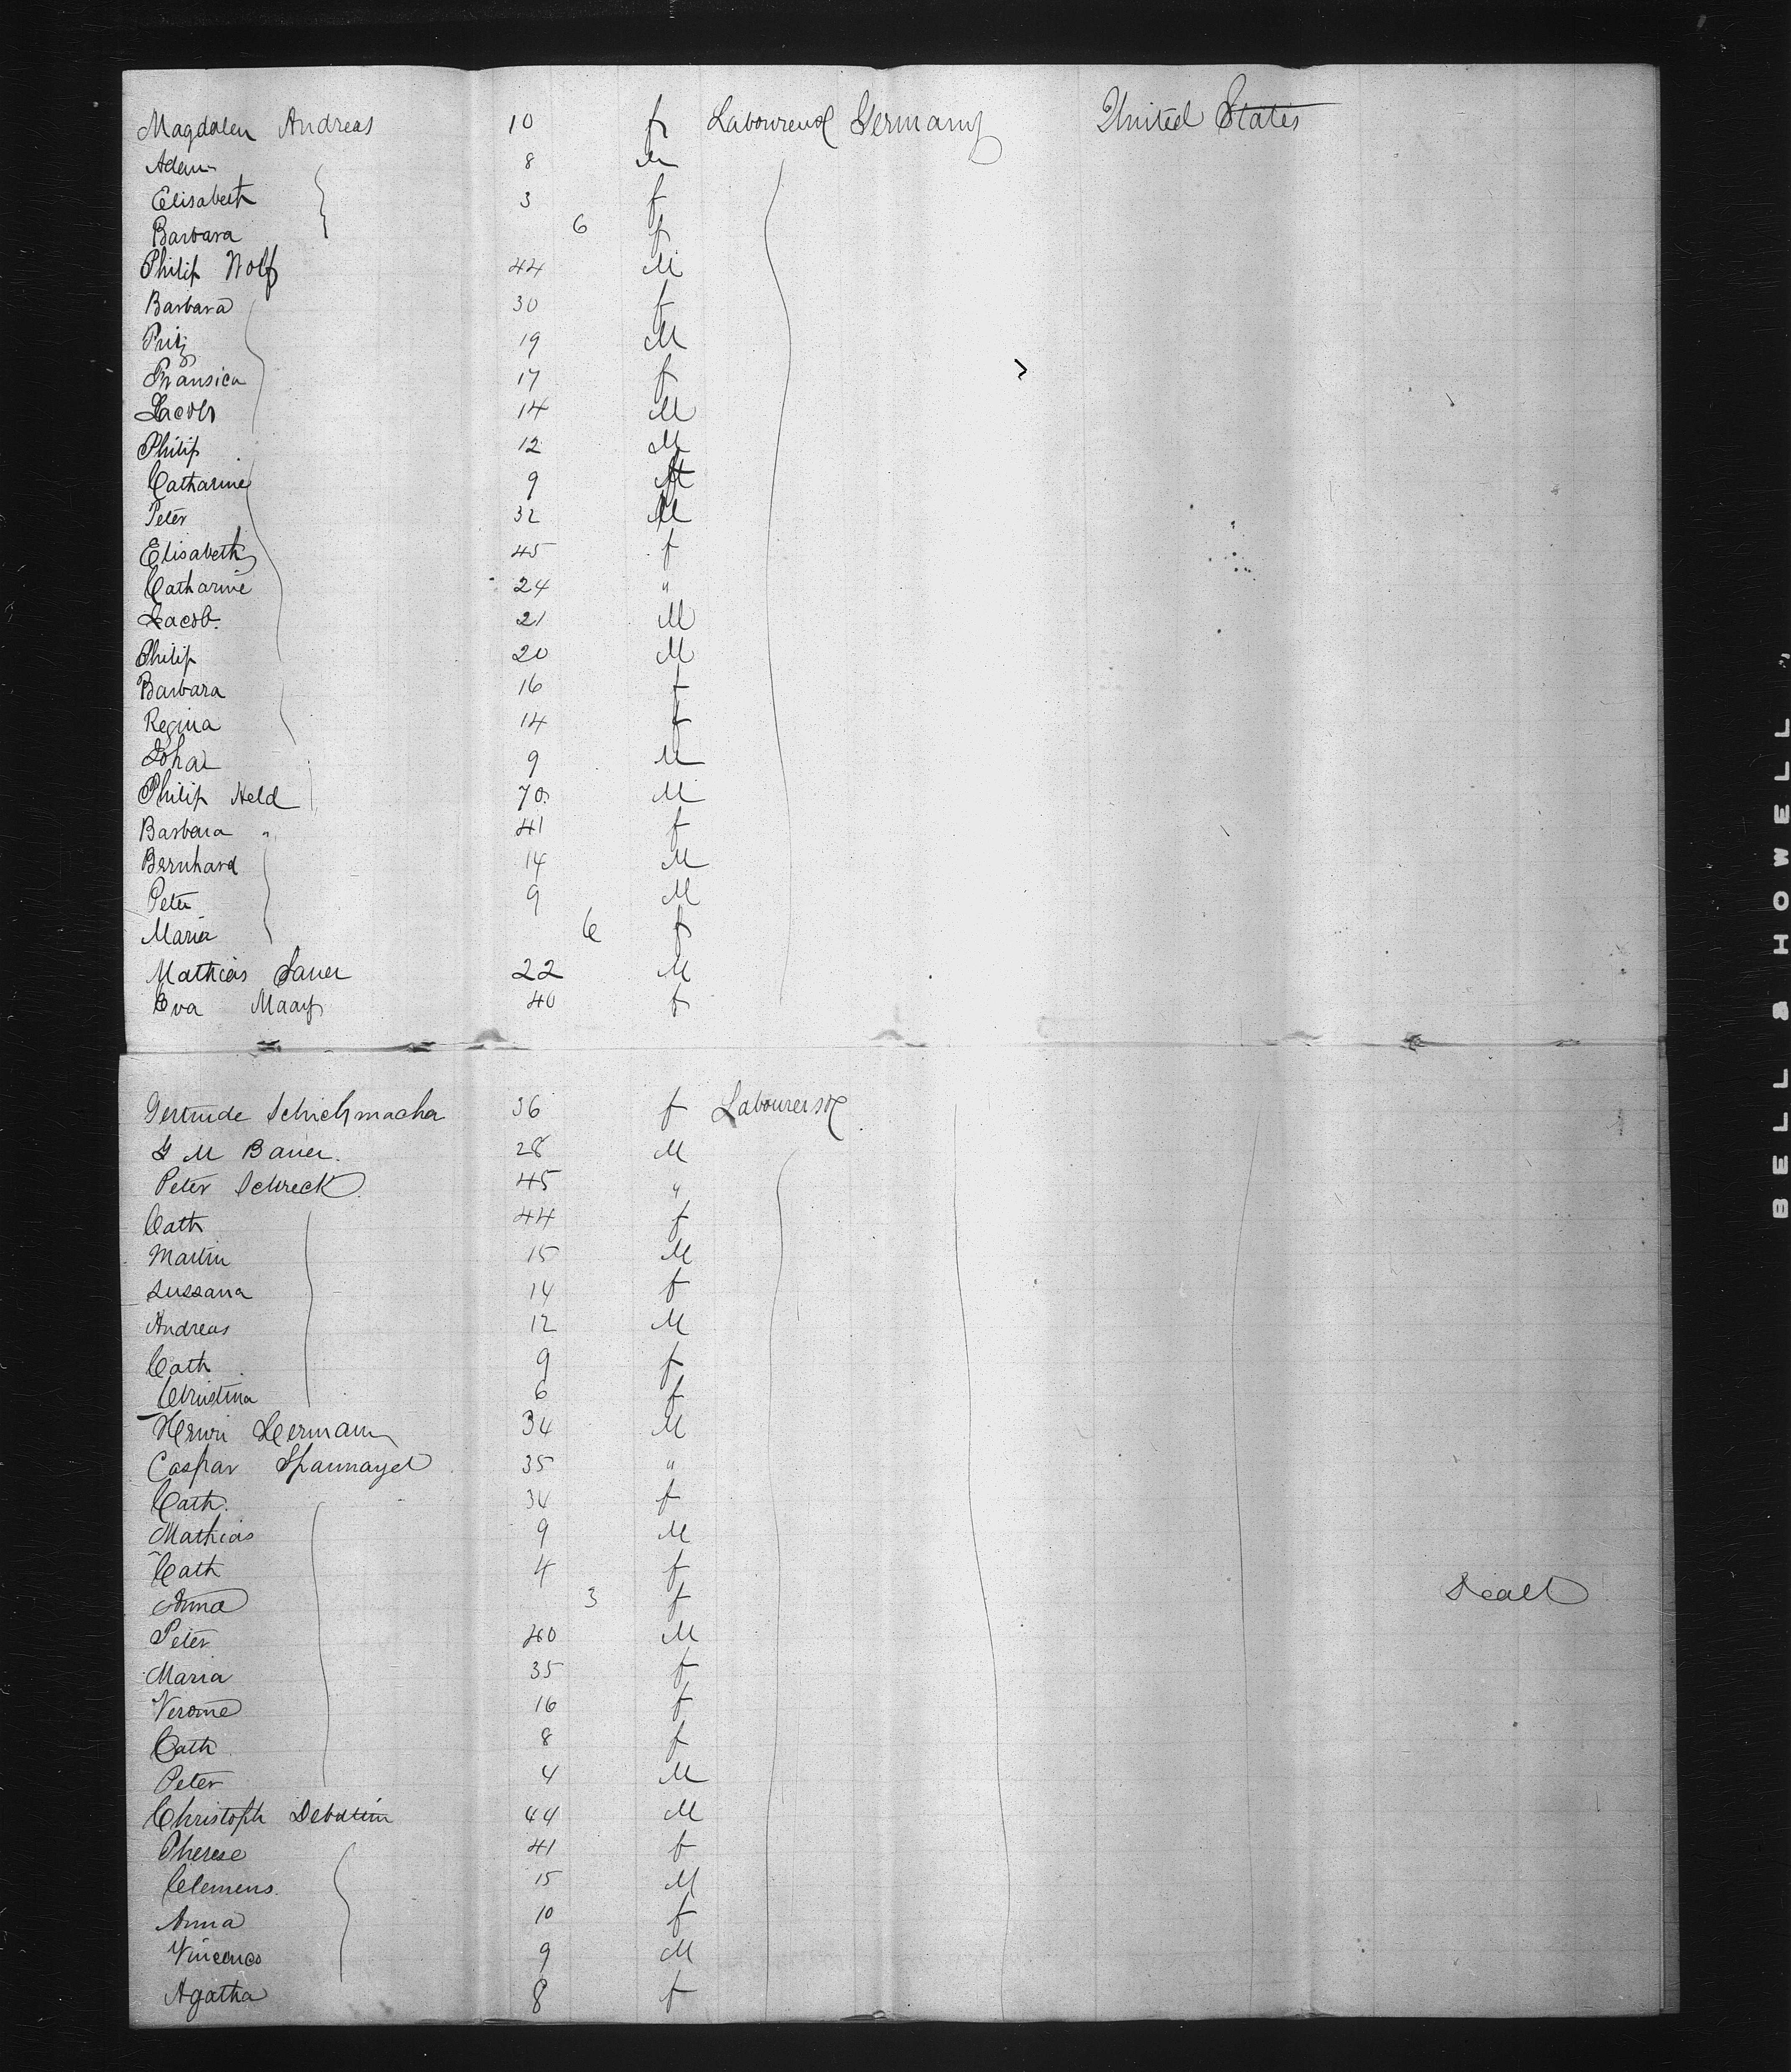 Magdalen Andreas 10 f Labourers Germany United States
Adam 8 M
Elisabeth 3 f
Barbara 6 f
Philip Wolf 44 M
Barbara 30 f
19 M
Fransica 17 f
Jacob 14 M
Philip 12 M
Catharine 9
Peter 32 M
Elisabeth 45 f
Catharine 24 "
Jacob. 21 M
Philip 20 M
Barbara 16 f
Regina 14 f
Johan 9 M
Philip Held 70 M
Barbara " 41 f
Bernhard 14 M
Peter 9 M
Maria 6 f
Mathias Sauer 22 M
Eva 40 f
Gertrude 36 f Labourers
M Bauer. 28 M
Peter Schreck 45 "
Cath 44 f
Martin 15 M
Sussana 14 f
Andreas 12 M
Cath 9 f
Christina 6 f
Henri Hermann 34 M
Caspar Spannagel 35 "
Cath. 34 f
Mathias 9 M
Cath 4 f
Anna 3 f
Peter 40 M
Maria 35 f
16 f
Cath 8 f
Peter 4 M
Christoph 44 M
Therese 41 f
Clemens. 15 M
Anna 10 f
9 M
Agatha 8 f
BELL & HOWELL